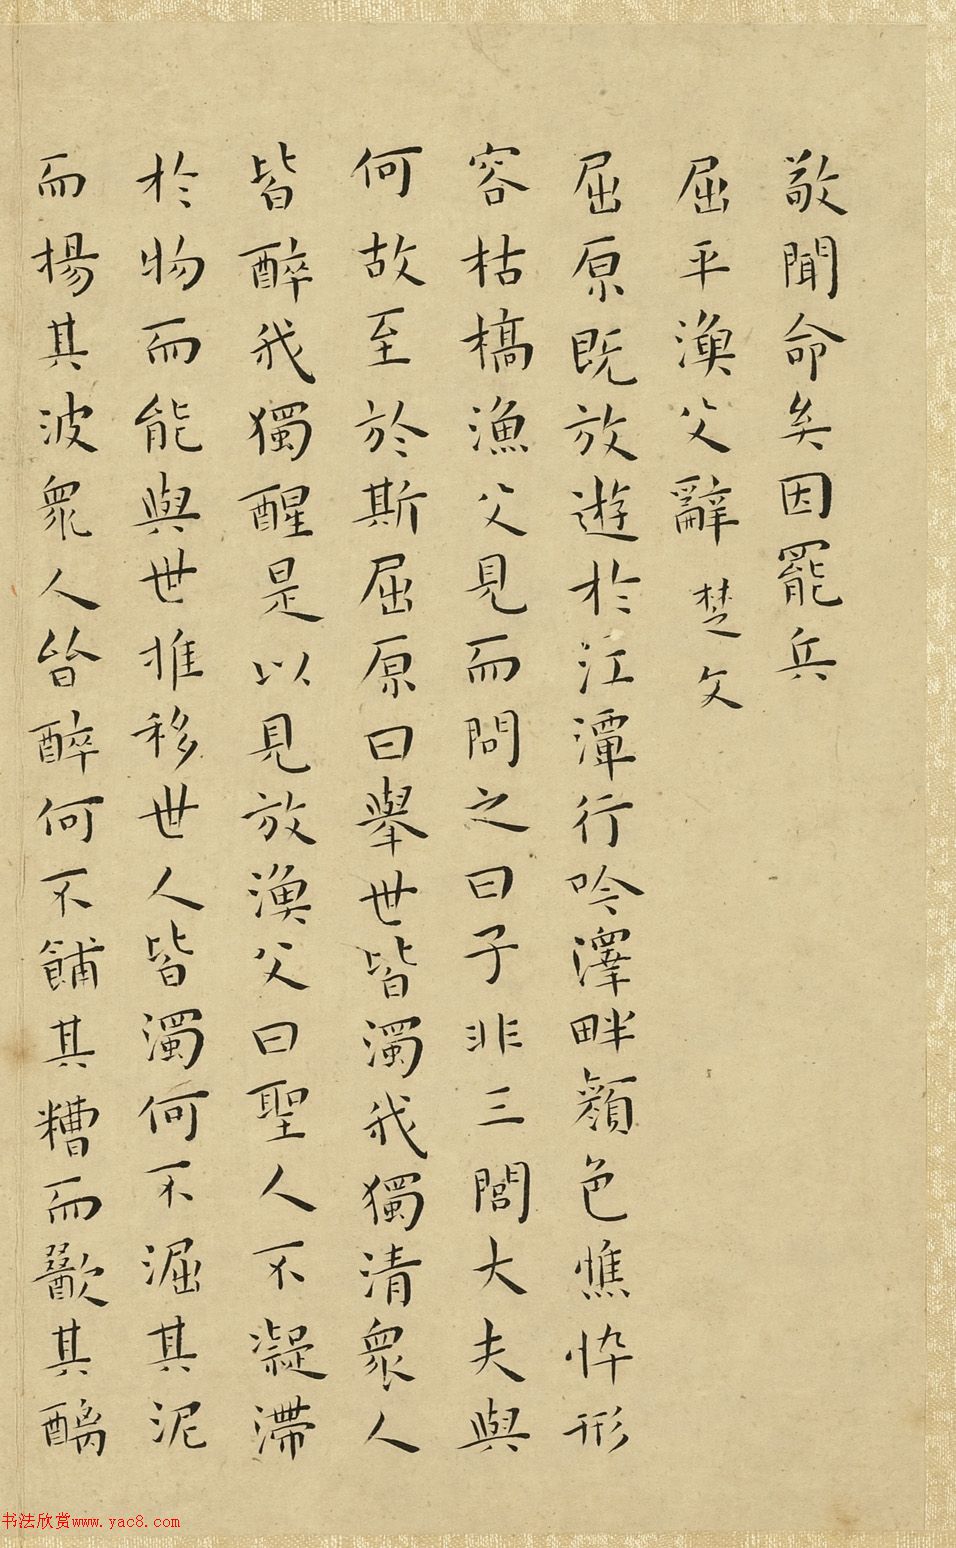 敬聞命矣因罷兵
屈平漁父辭 楚文
屈原既放遊於江潭行吟澤畔顏色憔悴形
容枯槁漁父見而問之曰子非三閭大夫與
何故至於斯屈原曰舉世皆濁我獨清衆人
皆醉我獨醒是以見放漁父曰聖人不凝滯
於物而能與世推移世人皆濁何不淈其泥
而揚其波衆人皆醉何不餔其糟而歠其醨
书法欣赏www.yac8.com